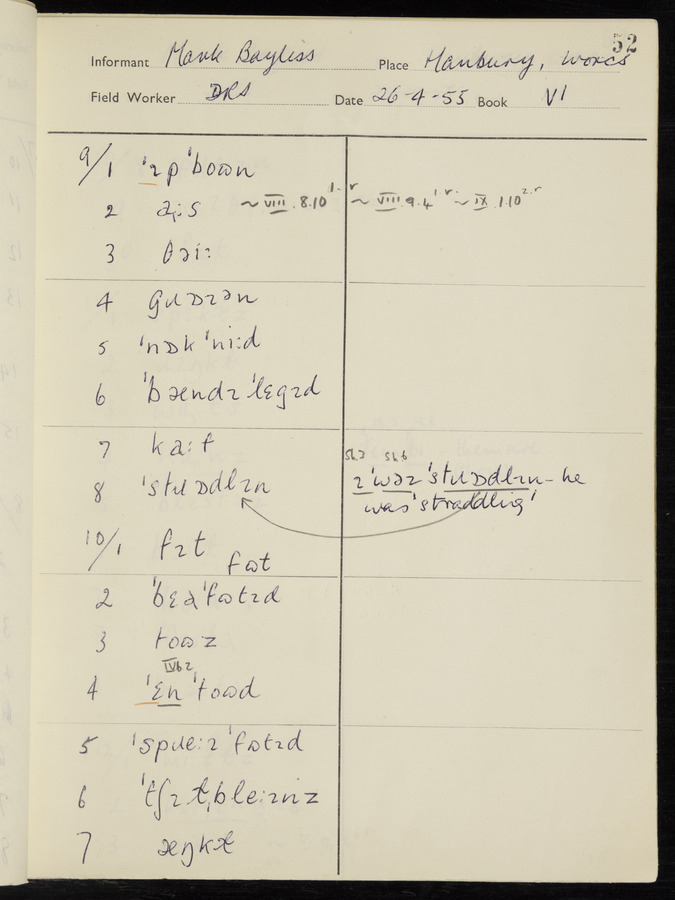 52
Informant Mark Bayliss Place Hanbury, Worcs
Field Worker DRS Date 26-4-55 Book VI
9/1 ˈɪpˈbʊən
2 ~ VIII.8.10 ~ VIII.9.4 ~ IX.1.10
3
4
5 ˈnɒkˈniːd
6 ˈbændɪˈlɛgɪd
7 kaːf
8 ˈstɹɒdlɪn ɪˈwəzˈstɹɒdlɪn - he
was 'straddling'
10/1 fɪt fʊt
2 ˈbɛəˈfʊtɪd
3 tʊəz
4 ˈɛnˈtʊəd
5 ˈspɹeːɪˈfʊtɪd
6 ˈtʃɪtˌbleːɪnz
7 æŋkɫ